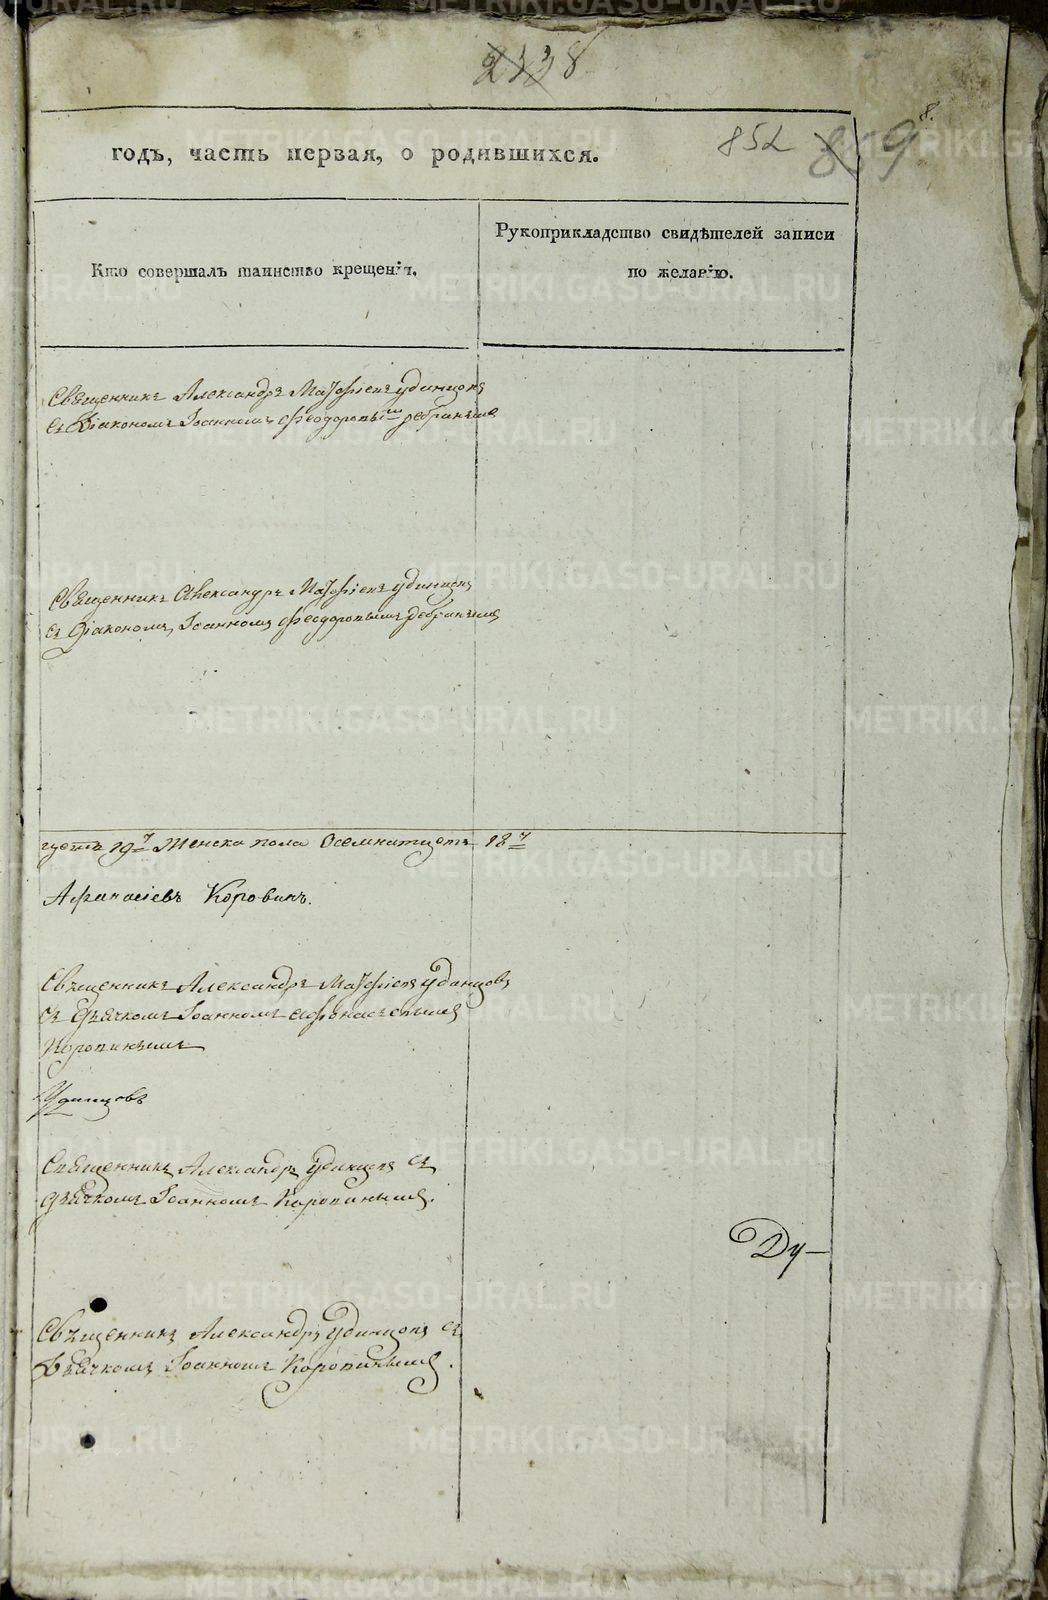 8
8.
852
859
годъ, часть первая, о родившихся.
Кто совершалъ таинство крещенія.
Рукоприкладство свидѣтелей записи
по желанію.
Священникъ Александръ Матфіевъ Удинцовъ
съ Діакономъ Іоанномъ Феодоровымъ
Священникъ Александръ Матфіевъ Удинцовъ
съ Діакономъ Іоанномъ Феодоровымъ
густъ 19ъ Женска пола Осемнатцеть 18ъ
Афанасіевъ Коровинъ.
Священникъ Александръ Матфіевъ Удинцовъ
съ дьячкомъ Іоанномъ Афонасьевымъ
Коровинымъ
Удинцовъ
Священникъ Александръ Удинцовъ съ
дьячкомъ Іоанномъ Коровинымъ.
Ду—
Священникъ Александръ Удинцовъ съ
Дьячкомъ Іоанномъ Коровинымъ.
METRIKI.GASO-URAL.RU